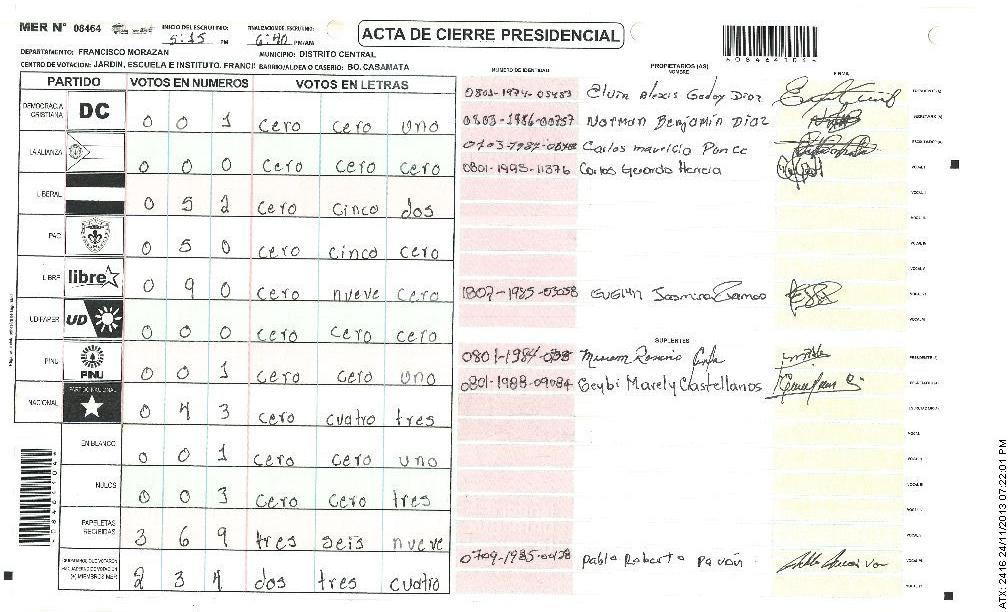 MER N° 08464
INICIO DEL ESCRUTINIO: 5:15 PM
FINALIZACION DE ESCRUTINIO: 6:40 PM/AM
ACTA DE CIERRE PRESIDENCIAL
DEPARTAMENTO: FRANCISCO MORAZAN
MUNICIPIO: DISTRITO CENTRAL
CENTRO DE VOTACION: JARDIN, ESCUELA E INSTITUTO. FRANCI
BARRIO/ALDEA O CASERIO: BO. CASAMATA
PARTIDO VOTOS EN NUMEROS VOTOS EN LETRAS
DEMOCRACIA CRISTIANA DC 0 0 1 cero cero uno
LA ALIANZA 0 0 0 cero cero cero
LIBERAL 0 5 2 cero cinco dos
PAC 0 5 0 cero cinco cero
LIBRE libre 0 9 0 cero nueve cero
UD FAPER UD 0 0 0 cero cero cero
PINU PINU 0 0 1 cero cero uno
NACIONAL PARTIDO NACIONAL 0 4 3 cero cuatro tres
EN BLANCO 0 0 1 cero cero uno
NULOS 0 0 3 cero cero tres
PAPELETAS RECIBIDAS 3 6 9 tres seis nueve
2 3 4 dos tres cuatro
NUMERO DE IDENTIDAD PROPIETARIOS (AS) NOMBRE FIRMA
Elvin Alexis Godoy Diaz
0803-1986-00757 Norman Benjamin Diaz
Carlos mauricio Ponce
0801-1995-11376 Carlos Gerardo Herrera
1807-1985-03058
SUPLENTES
Miriam Rosario
0801-1988-09084 Geybi Marely Castellanos
Pablo Roberto Pavón
ATX: 2416 24/11/2013 07:22:01 PM